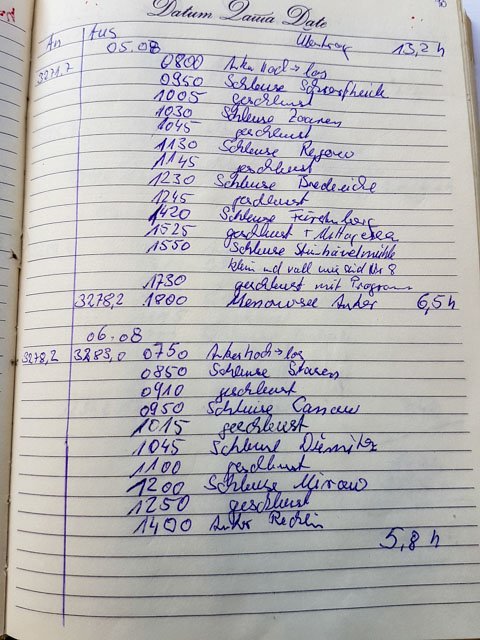 Datum Data Date
An Aus Übertrag 13,2 h
05.08
3271,7 0800 Anker hoch → los
0950 Schleuse Schorfheide
1005 geschleust
1030 Schleuse Zaaren
1045 geschleust
1130 Schleuse Regow
1145 geschleust
1230 Schleuse Bredereiche
1245 geschleust
1420 Schleuse Fürstenberg
1525 geschleust + Mittagessen
1550 Schleuse Steinhavelmühle
klein und voll wir sind Nr 8
1730 geschleust mit Programm
3278,2 1800 Menowsee Anker 6,5 h
06.08
3278,2 3283,0 0750 Anker hoch → los
0850 Schleuse Strasen
0910 geschleust
0950 Schleuse Canow
1015 geschleust
1045 Schleuse Diemitz
1100 geschleust
1200 Schleuse Mirow
1250 geschleust
1400 Anker Rechlin
5,8 h